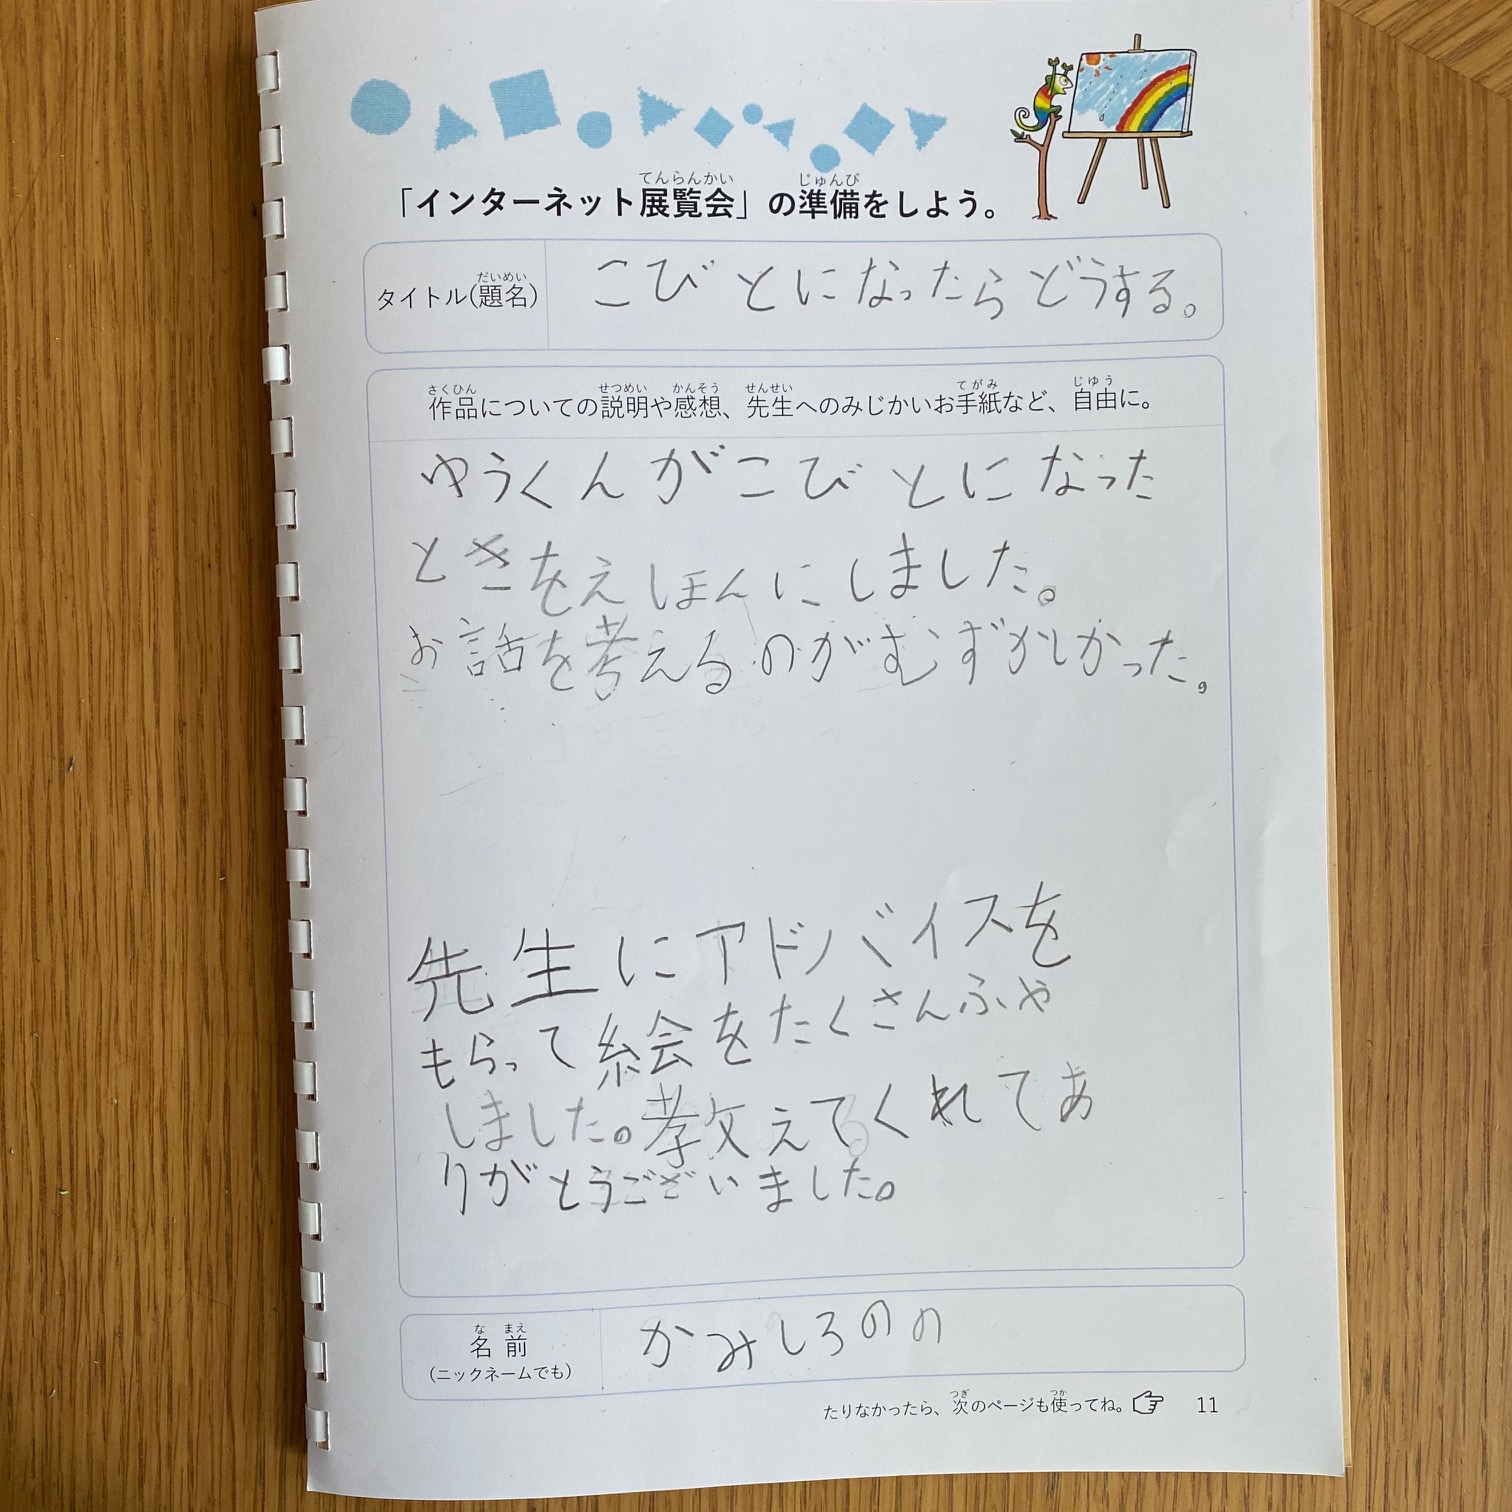 てんらんかい じゅんび
「インターネット展覧会」の準備をしよう。
だいめい
タイトル(題名)
こびとになったらどうする。
さくひん せつめい かんそう せんせい てがみ じゆう
作品についての説明や感想、先生へのみじかいお手紙など、自由に。
ゆうくんがこびとになった
ときをえほんにしました。
お話を考えるのがむずかしかった。
先生にアドバイスを
もらって絵をたくさんふや
しました。教えてくれてあ
りがとうございました。
な まえ
名前
(ニックネームでも)
かみしろのの
つぎ つか
たりなかったら、次のページも使ってね。 11